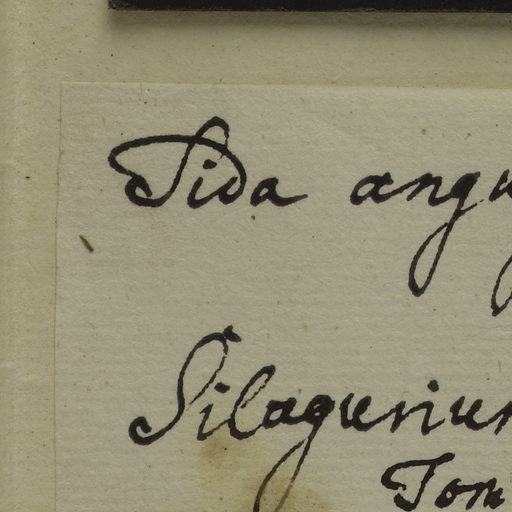 Sida angu
Silagurium
Tom